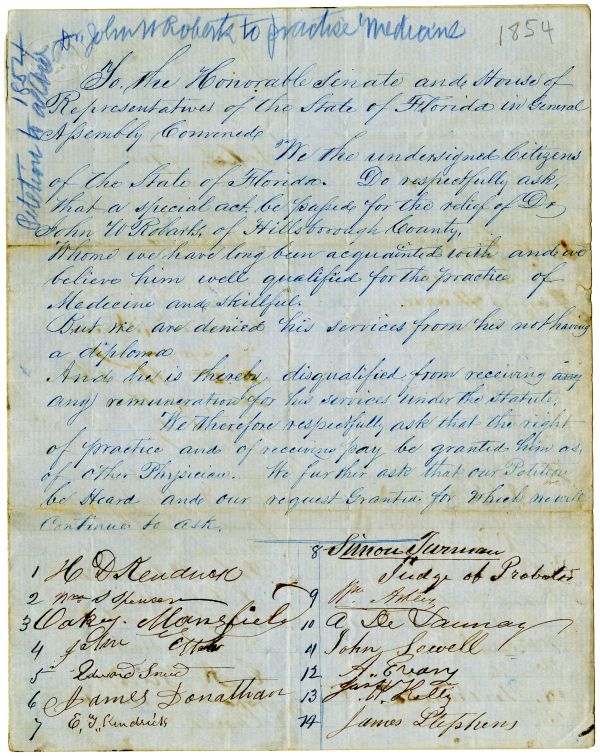 Dr John W Roberts to practise Medicine
1854
Petition to allow
1854
To, the Honorable Senate and House of
Representatives of the State of Florida in General
Assembly Convened
We the undersigned Citizens
of the State of Florida. Do respectfully ask,
that a special act, be passed, for the relief of Dr
John W Robarts, of Hillsborough County,
Whome we have long been acquainted with and we
believe him well qualified for the practice of
Medecine and skillful.
But we are denied his services from his not having
a diploma
And he is thereby disqualified from receiving any
any remuneration for his services under the Statute,
We therefore respectfully ask that the right
of practice and of receiving pay be granted him as,
of other Physician. We further ask that our Petition
be Heard and our request Granted for Which we will
Continue to ask.
1 H D Kendrick
2 Wm S Spencer
3 Oakey Mansfield
4 John
5 Edward
6 James Donathan
7 E, T, Kendrick
8 Simon Turman
Judge of Probate
9 Wm
10 A De Launay
11 John Sowell
12 A, Evans
13 Kelly
14 James Stephens